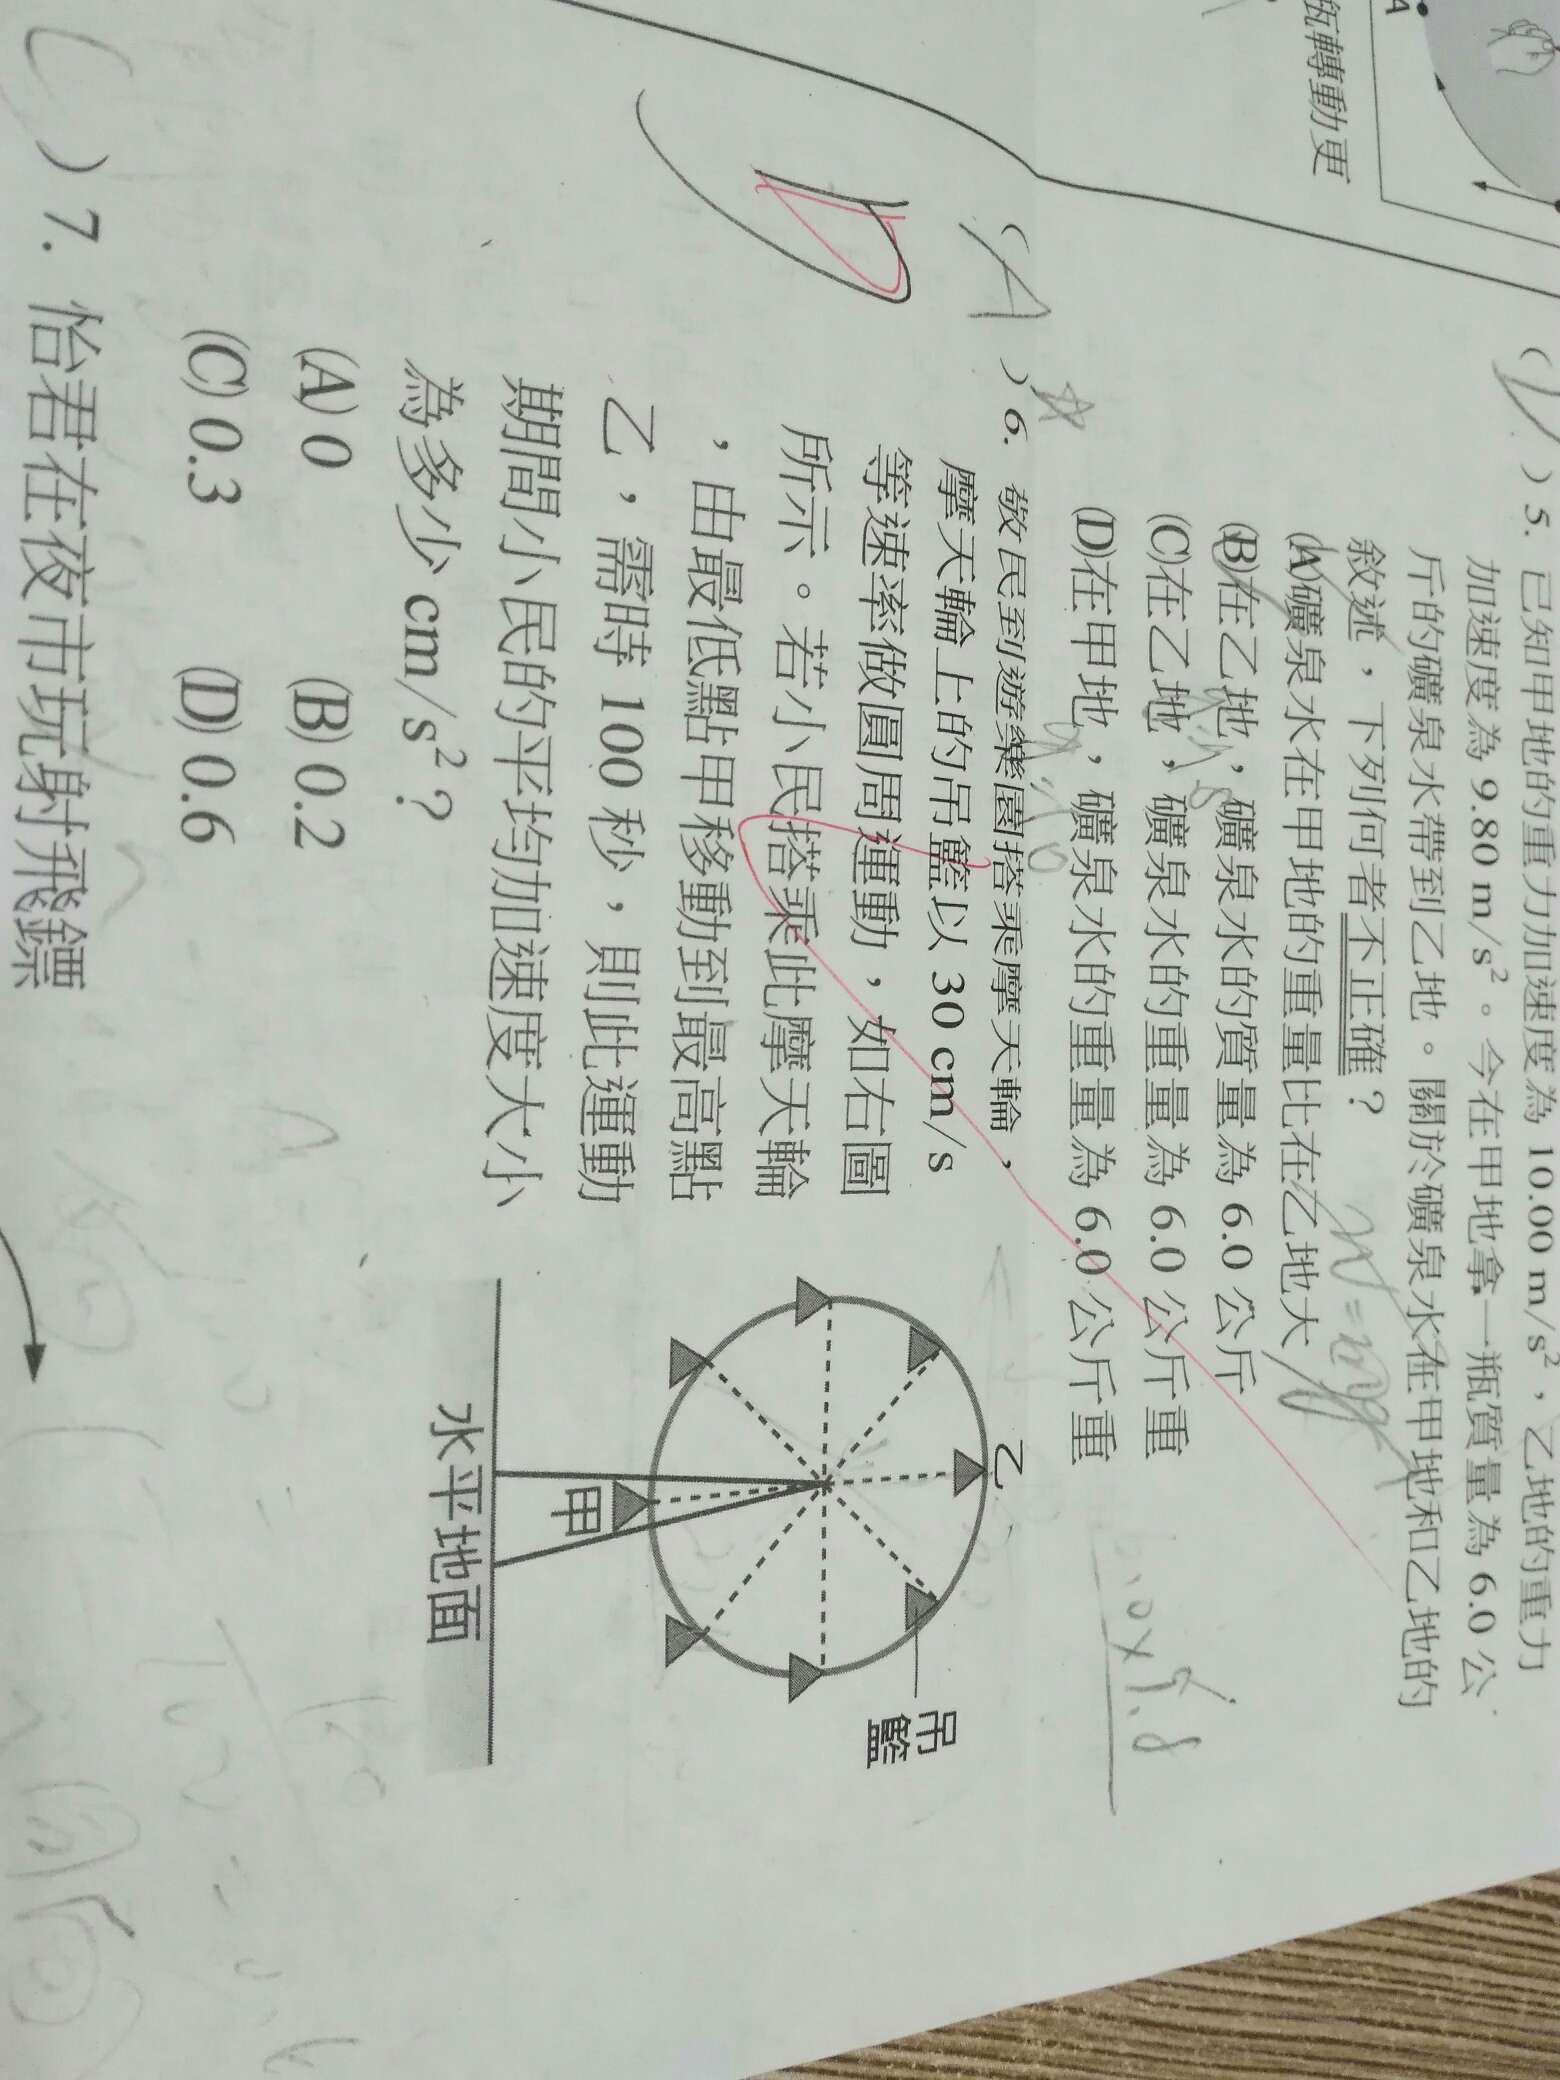 A
瓶轉動更
( )5. 已知甲地的重力加速度為 10.00 m/s²,乙地的重力
加速度為 9.80 m/s²。今在甲地拿一瓶質量為 6.0 公
斤的礦泉水帶到乙地。關於礦泉水在甲地和乙地的
敘述,下列何者不正確?
(A)礦泉水在甲地的重量比在乙地大
(B)在乙地,礦泉水的質量為 6.0 公斤
(C)在乙地,礦泉水的重量為 6.0 公斤重
(D)在甲地,礦泉水的重量為 6.0 公斤重
W=mg
6.0×9.8
(A)6. 敬民到遊樂園搭乘摩天輪,
摩天輪上的吊籃以 30 cm/s
等速率做圓周運動,如右圖
所示。若小民搭乘此摩天輪
,由最低點甲移動到最高點
乙,需時 100 秒,則此運動
期間小民的平均加速度大小
為多少 cm/s²?
(A) 0 (B) 0.2
(C) 0.3 (D) 0.6
D
乙
吊籃
甲
水平地面
( )7. 怡君在夜市玩射飛鏢